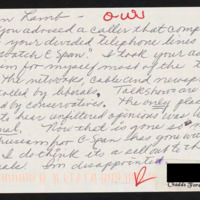 n Lamb - our
you advised a caller that comp
your divided telephone lines
watch C Span". I took your ad
for myself most of the
the networks, cable and newsp
rolled by liberals. Talk shows are
ed by conservatives. The only place
to hear unfiltered opinions was
nal. Now that is gone so
thusiasm for C-Span has gone wi
I do think its a sell out to th
als. I'm disappointed
R
Chadds Ford